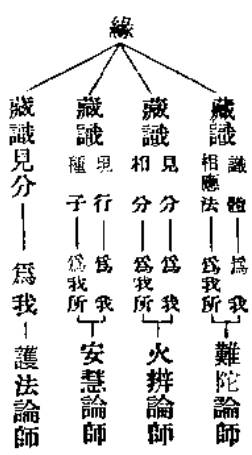 緣
藏識
識體 為我
相應法 為我所
難陀論師
藏識
見分 為我
相分 為我所
火辨論師
藏識
現行 為我
種子 為我所
安慧論師
藏識見分 為我 護法論師